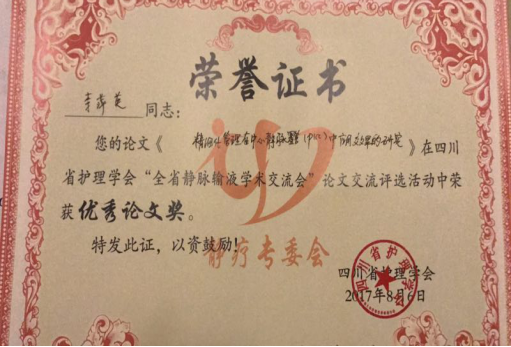 荣誉证书
同志：
您的论文《精细化管理在中心静脉置管（PICC）中应用效果的研究》在四川
省护理学会“全省静脉输液学术交流会”论文交流评选活动中荣
获优秀论文奖。
特发此证，以资鼓励！
静疗专委会
四川省护理学会
2017年8月6日
四川省护理学会